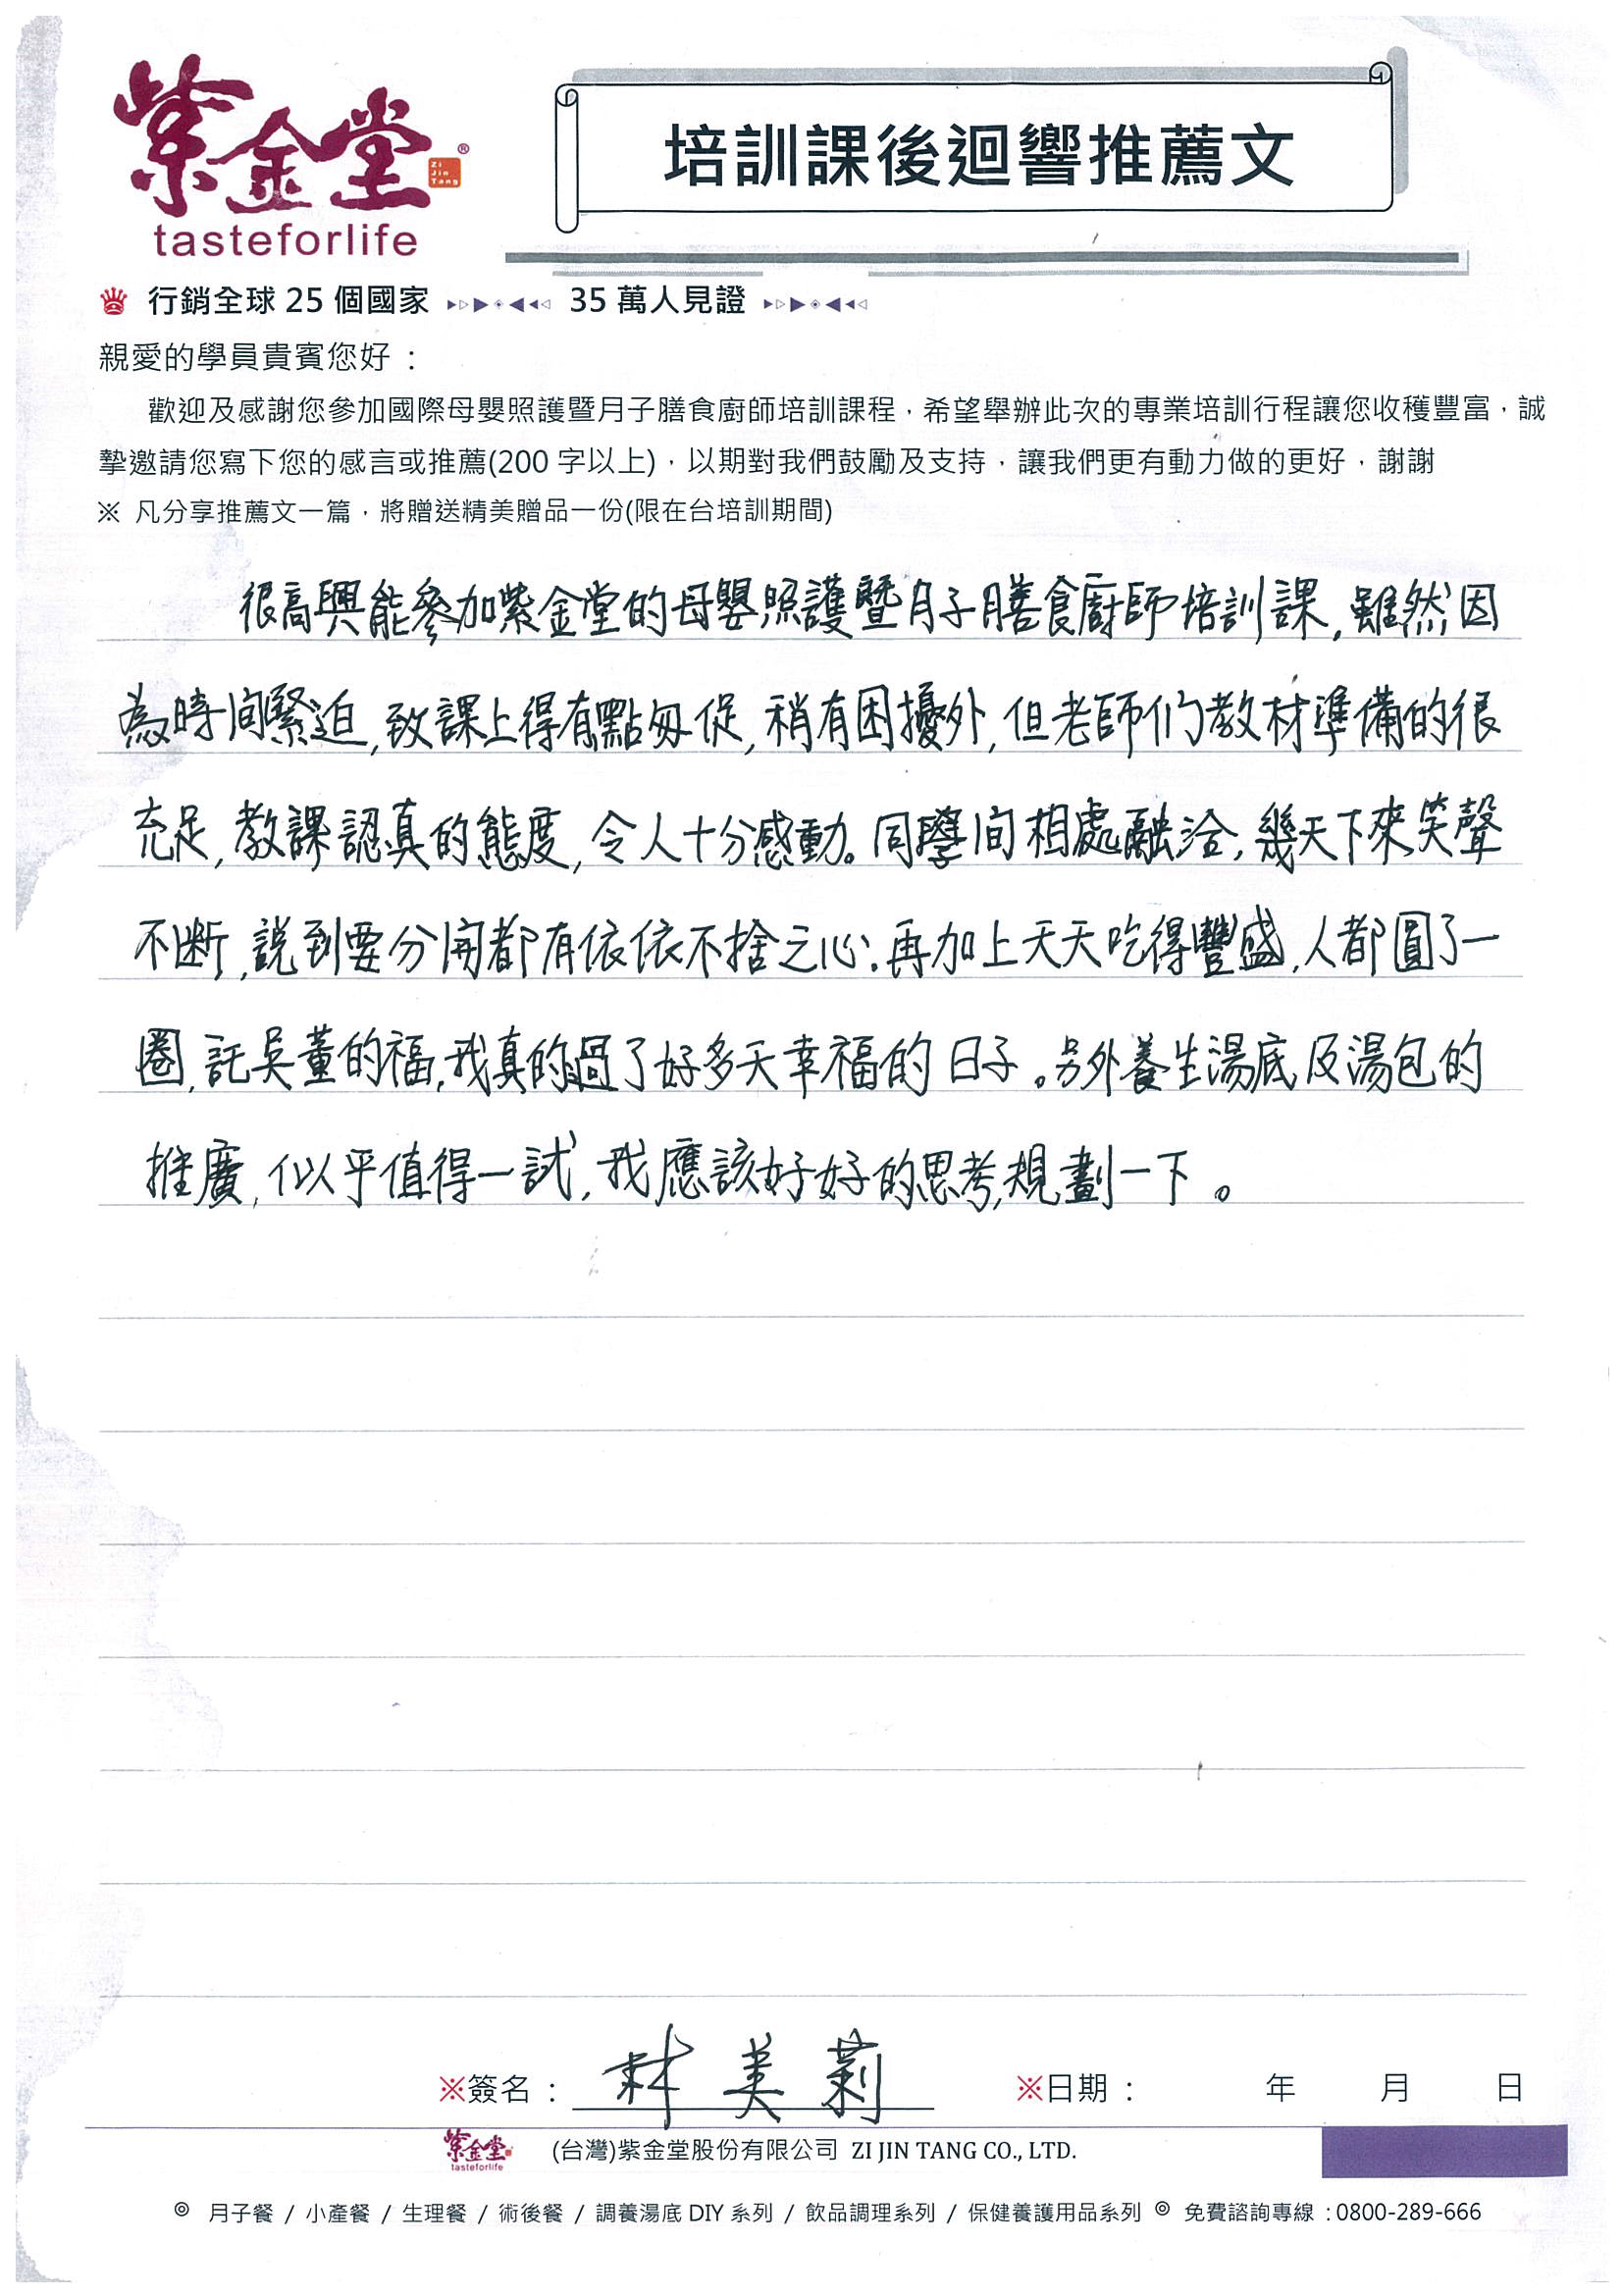 紫金堂®
Zi Jin Tang
tasteforlife
培訓課後迴響推薦文
行銷全球 25 個國家 35 萬人見證
親愛的學員貴賓您好：
歡迎及感謝您參加國際母嬰照護暨月子膳食廚師培訓課程，希望舉辦此次的專業培訓行程讓您收穫豐富，誠
摯邀請您寫下您的感言或推薦(200 字以上)，以期對我們鼓勵及支持，讓我們更有動力做的更好，謝謝
※ 凡分享推薦文一篇，將贈送精美贈品一份(限在台培訓期間)
很高興能參加紫金堂的母嬰照護暨月子膳食廚師培訓課,雖然因
為時間緊迫,致課上得有點匆促,稍有困擾外,但老師们教材準備的很
充足,教課認真的態度,令人十分感動。同學间相處融洽,幾天下來笑聲
不断,説到要分開都有依依不捨之心.再加上天天吃得豐盛,人都圓了一
圈,託吳董的福,我真的過了好多天幸福的日子。另外養生湯底及湯包的
推廣,似乎值得一試,我應該好好的思考,規劃一下。
※簽名： 林美莉 ※日期： 年 月 日
紫金堂 tasteforlife (台灣)紫金堂股份有限公司 ZI JIN TANG CO., LTD.
◎ 月子餐 / 小產餐 / 生理餐 / 術後餐 / 調養湯底 DIY 系列 / 飲品調理系列 / 保健養護用品系列 ◎ 免費諮詢專線：0800-289-666